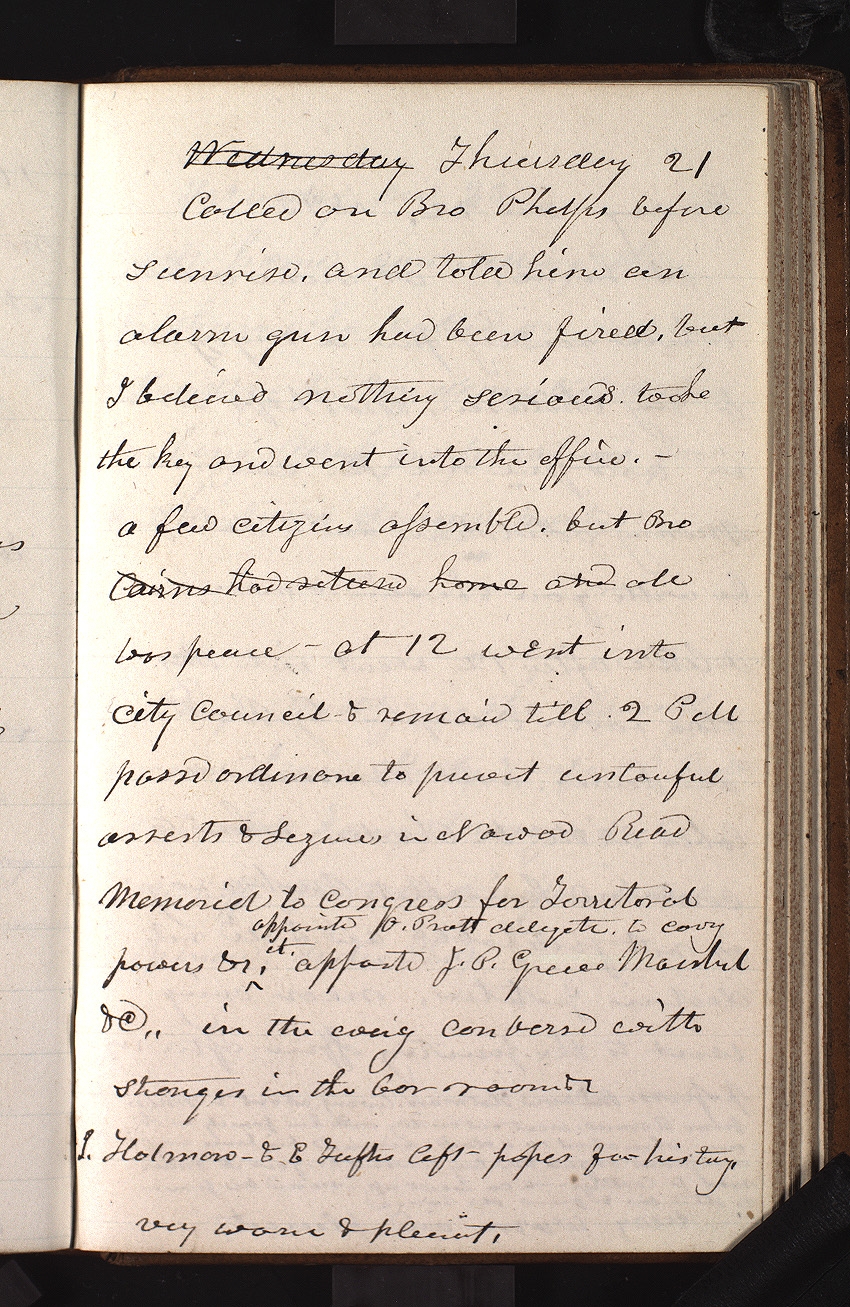 Wednesday Thursday 21
Called on Bro Phelps before
sunrise. and told him an
alarm gun had been fired, but
I believd nothing serious. took
the key and went into the office. -
a few citizins assembld. but Bro
Cairns had returnd home and all
was peace - at 12 went into
city council & remaid till 2 P M
passd ordinance to prevet unlawful
arrests & Sezures in Navoo Read
Memorial to congress for Territoral
appointd O. Pratt delegate. to carry
it
powers &c, appointd J. P. Greee Marshal
&c,, in the eveig conversd with
stranges in the bar room &c
J. Holman - & E Tufts left papes for histoy,
vey warm & pleast.